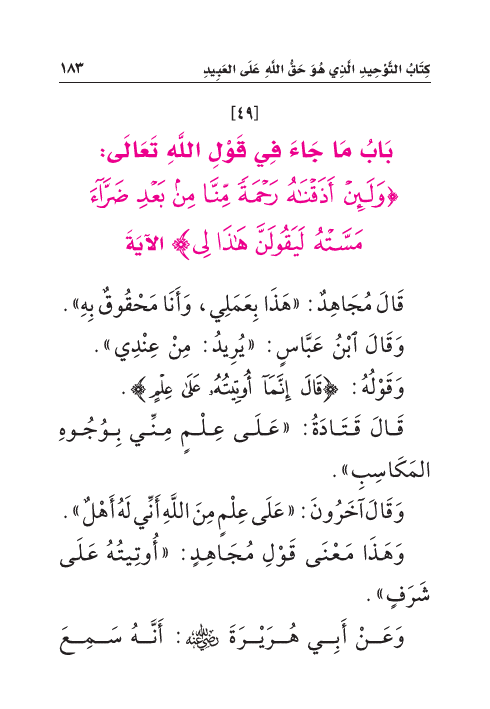 كِتَابُ التَّوْحِيدِ الَّذِي هُوَ حَقُّ اللَّهِ عَلَى العَبِيدِ ١٨٣
[٤٩]
بَابُ مَا جَاءَ فِي قَوْلِ اللَّهِ تَعَالَى:
﴿وَلَئِنْ أَذَقْنَٰهُ رَحْمَةً مِّنَّا مِنۢ بَعْدِ ضَرَّآءَ
مَسَّتْهُ لَيَقُولَنَّ هَٰذَا لِى﴾ الآيَةَ
قَالَ مُجَاهِدٌ: «هَذَا بِعَمَلِي، وَأَنَا مَحْقُوقٌ بِهِ».
وَقَالَ ٱبْنُ عَبَّاسٍ: «يُرِيدُ: مِنْ عِنْدِي».
وَقَوْلُهُ: ﴿قَالَ إِنَّمَآ أُوتِيتُهُۥ عَلَىٰ عِلْمٍ﴾.
قَالَ قَتَادَةُ: «عَلَى عِلْمٍ مِنِّي بِوُجُوهِ
المَكَاسِبِ».
وَقَالَ آخَرُونَ: «عَلَى عِلْمٍ مِنَ اللَّهِ أَنِّي لَهُ أَهْلٌ».
وَهَذَا مَعْنَى قَوْلِ مُجَاهِدٍ: «أُوتِيتُهُ عَلَى
شَرَفٍ».
وَعَنْ أَبِي هُرَيْرَةَ رضي الله عنه: أَنَّهُ سَمِعَ